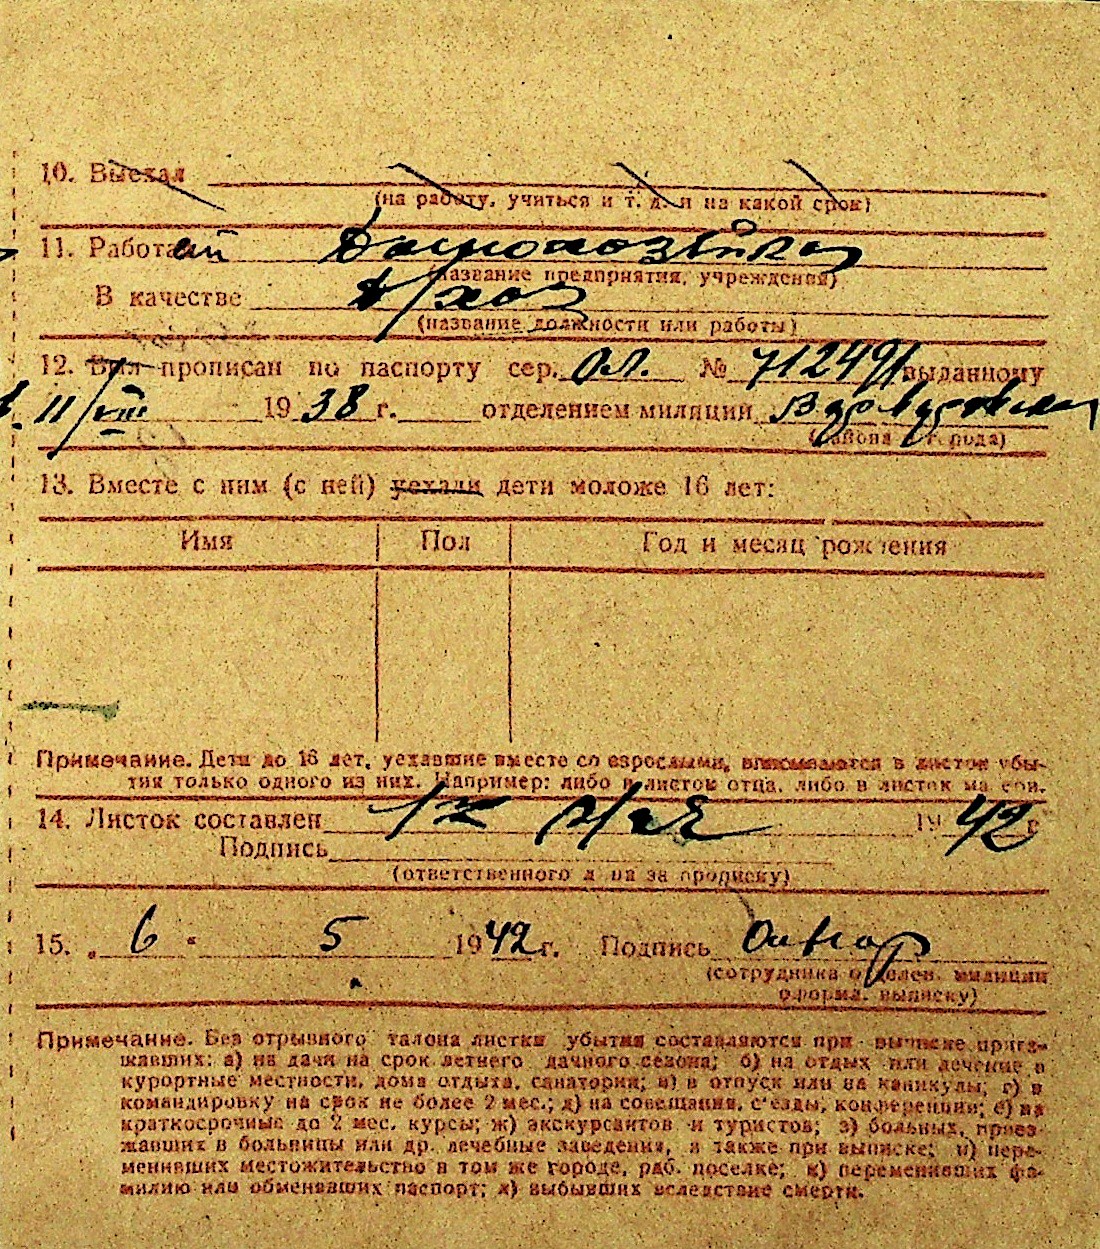 10. Выехал
(на работу, учиться и т. д. и на какой срок)
11. Работа ей Домохозяйка
(название предприятия, учреждения)
В качестве д/хоз
(название должности или работы)
12. Был прописан по паспорту сер. ОЛ. № 712491 выданному
11/VIII 1938 г. отделением милиции
(района и города)
13. Вместе с ним (с ней) уехали дети моложе 16 лет:
Имя Пол Год и месяц рождения
Примечание. Дети до 16 лет, уехавшие вместе со взрослыми, вписываются в листок убы-
тия только одного из них. Например: либо в листок отца, либо в листок матери.
14. Листок составлен 1942 г.
Подпись
(ответственного лица за прописку)
15. „6“ 5 1942 г. Подпись
(сотрудника отделен. милиции
оформл. выписку)
Примечание. Без отрывного талона листки убытия составляются при выписке приез-
жавших: а) на дачи на срок летнего дачного сезона; б) на отдых или лечение в
курортные местности, дома отдыха, санатории; в) в отпуск или на каникулы; г) в
командировку на срок не более 2 мес.; д) на совещания, с'езды, конференции; е) на
краткосрочные до 2 мес. курсы; ж) экскурсантов и туристов; з) больных, приез-
жавших в больницы или др. лечебные заведения, а также при выписке; и) пере-
менивших местожительство в том же городе, раб. поселке; к) переменивших фа-
милию или обменявших паспорт; л) выбывших вследствие смерти.